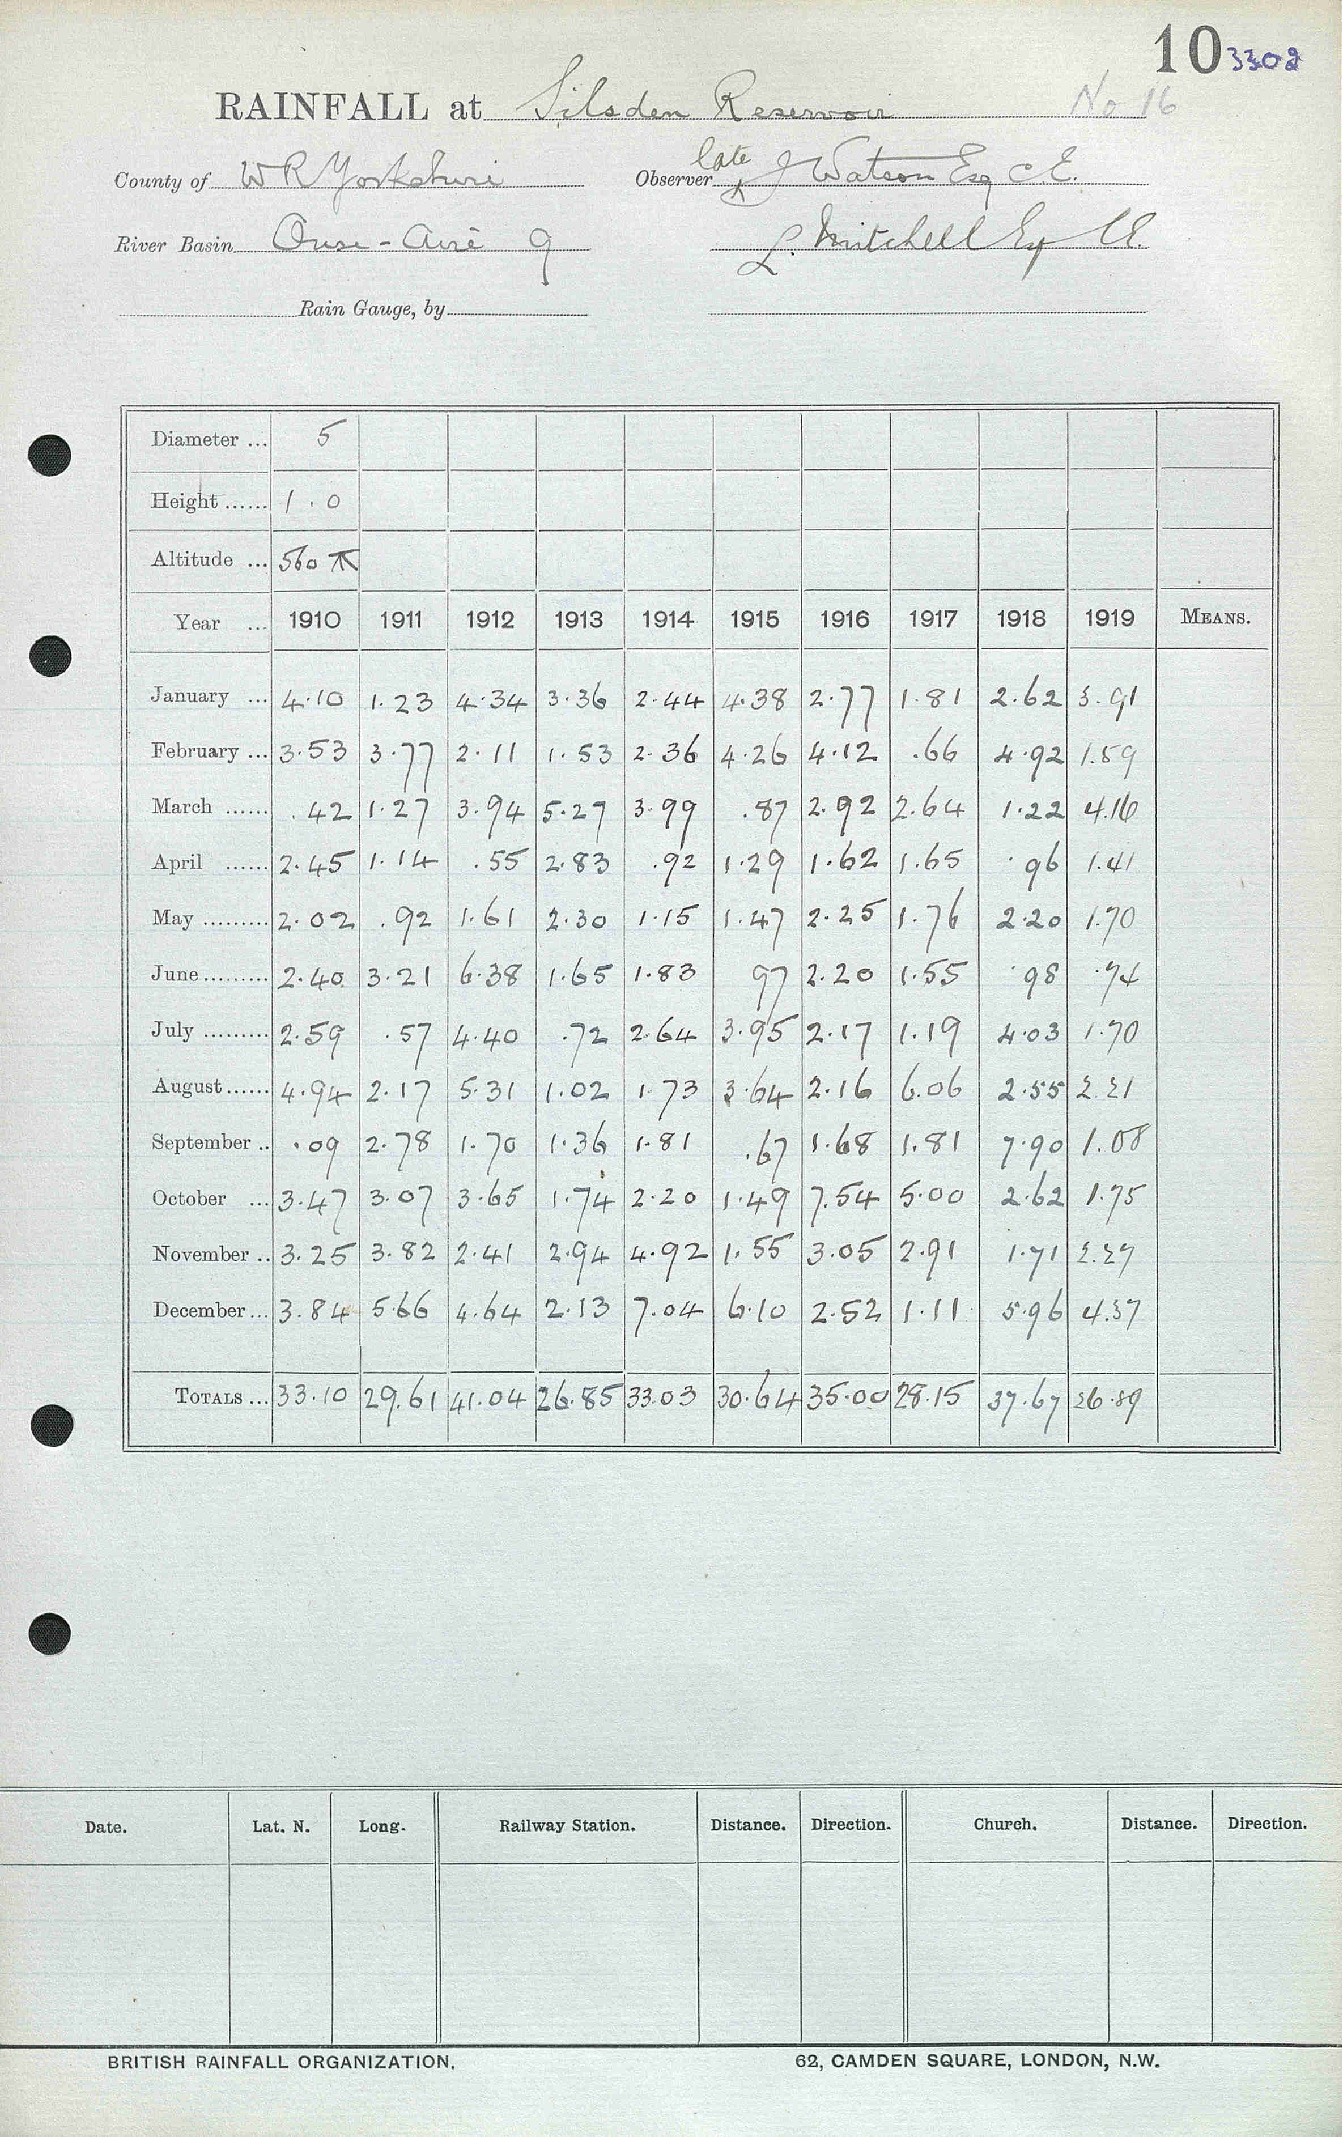 10 3302
RAINFALL at Silsden Reservoir No 16
County of W R Yorkshire Observer late J Watson Esq C.E.
River Basin Ouse - Aire 9 L. Mitchell Esq CE.
Rain Gauge, by
Diameter ... 5
Height ...... 1 . 0
Altitude ... 560
Year ... 1910 1911 1912 1913 1914 1915 1916 1917 1918 1919 MEANS.
January ... 4.10 1.23 4.34 3.36 2.44 4.38 2.77 1.81 2.62 3.91
February ... 3.53 3.77 2.11 1.53 2.36 4.26 4.12 .66 4.92 1.59
March ...... .42 1.27 3.94 5.27 3.99 .87 2.92 2.64 1.22 4.16
April ...... 2.45 1.14 .55 2.83 .92 1.29 1.62 1.65 .96 1.41
May ......... 2.02 .92 1.61 2.30 1.15 1.47 2.25 1.76 2.20 1.70
June ......... 2.40 3.21 6.38 1.65 1.83 97 2.20 1.55 .98 .74
July ......... 2.59 .57 4.40 .72 2.64 3.95 2.17 1.19 4.03 1.70
August ...... 4.94 2.17 5.31 1.02 1.73 3.64 2.16 6.06 2.55 2.21
September .. .09 2.78 1.70 1.36 1.81 .67 1.68 1.81 7.90 1.08
October ... 3.47 3.07 3.65 1.74 2.20 1.49 7.54 5.00 2.62 1.75
November .. 3.25 3.82 2.41 2.94 4.92 1.55 3.05 2.91 1.71 2.27
December ... 3.84 5.66 4.64 2.13 7.04 6.10 2.52 1.11 5.96 4.37
TOTALS ... 33.10 29.61 41.04 26.85 33.03 30.64 35.00 28.15 37.67 26.89
Date. Lat. N. Long. Railway Station. Distance. Direction. Church. Distance. Direction.
BRITISH RAINFALL ORGANIZATION. 62, CAMDEN SQUARE, LONDON, N.W.